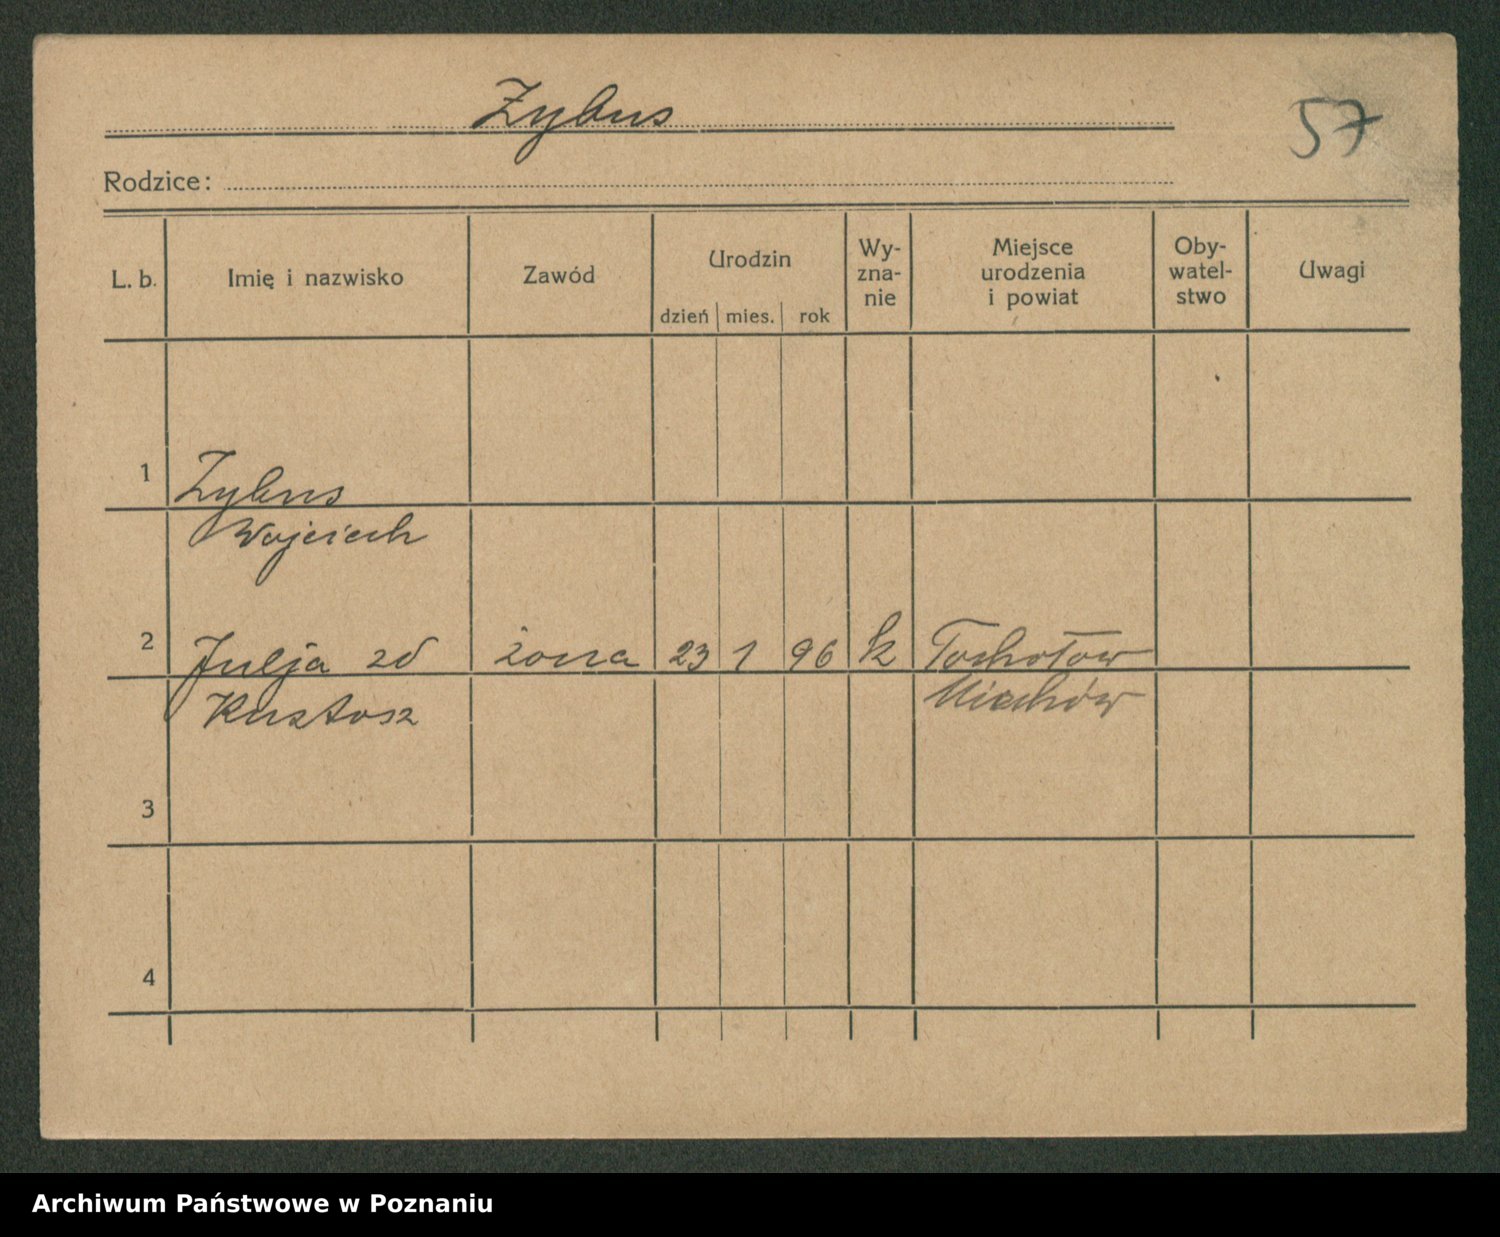 Zybus
57
Rodzice:
L. b. Imię i nazwisko Zawód Urodzin dzień mies. rok Wy-zna-nie Miejsce urodzenia i powiat Oby-watel-stwo Uwagi
1 Zybus
Wojciech
2 Julja zd żona 23 1 96 k Tochołow
Kustosz Miechów
3
4
Archiwum Państwowe w Poznaniu